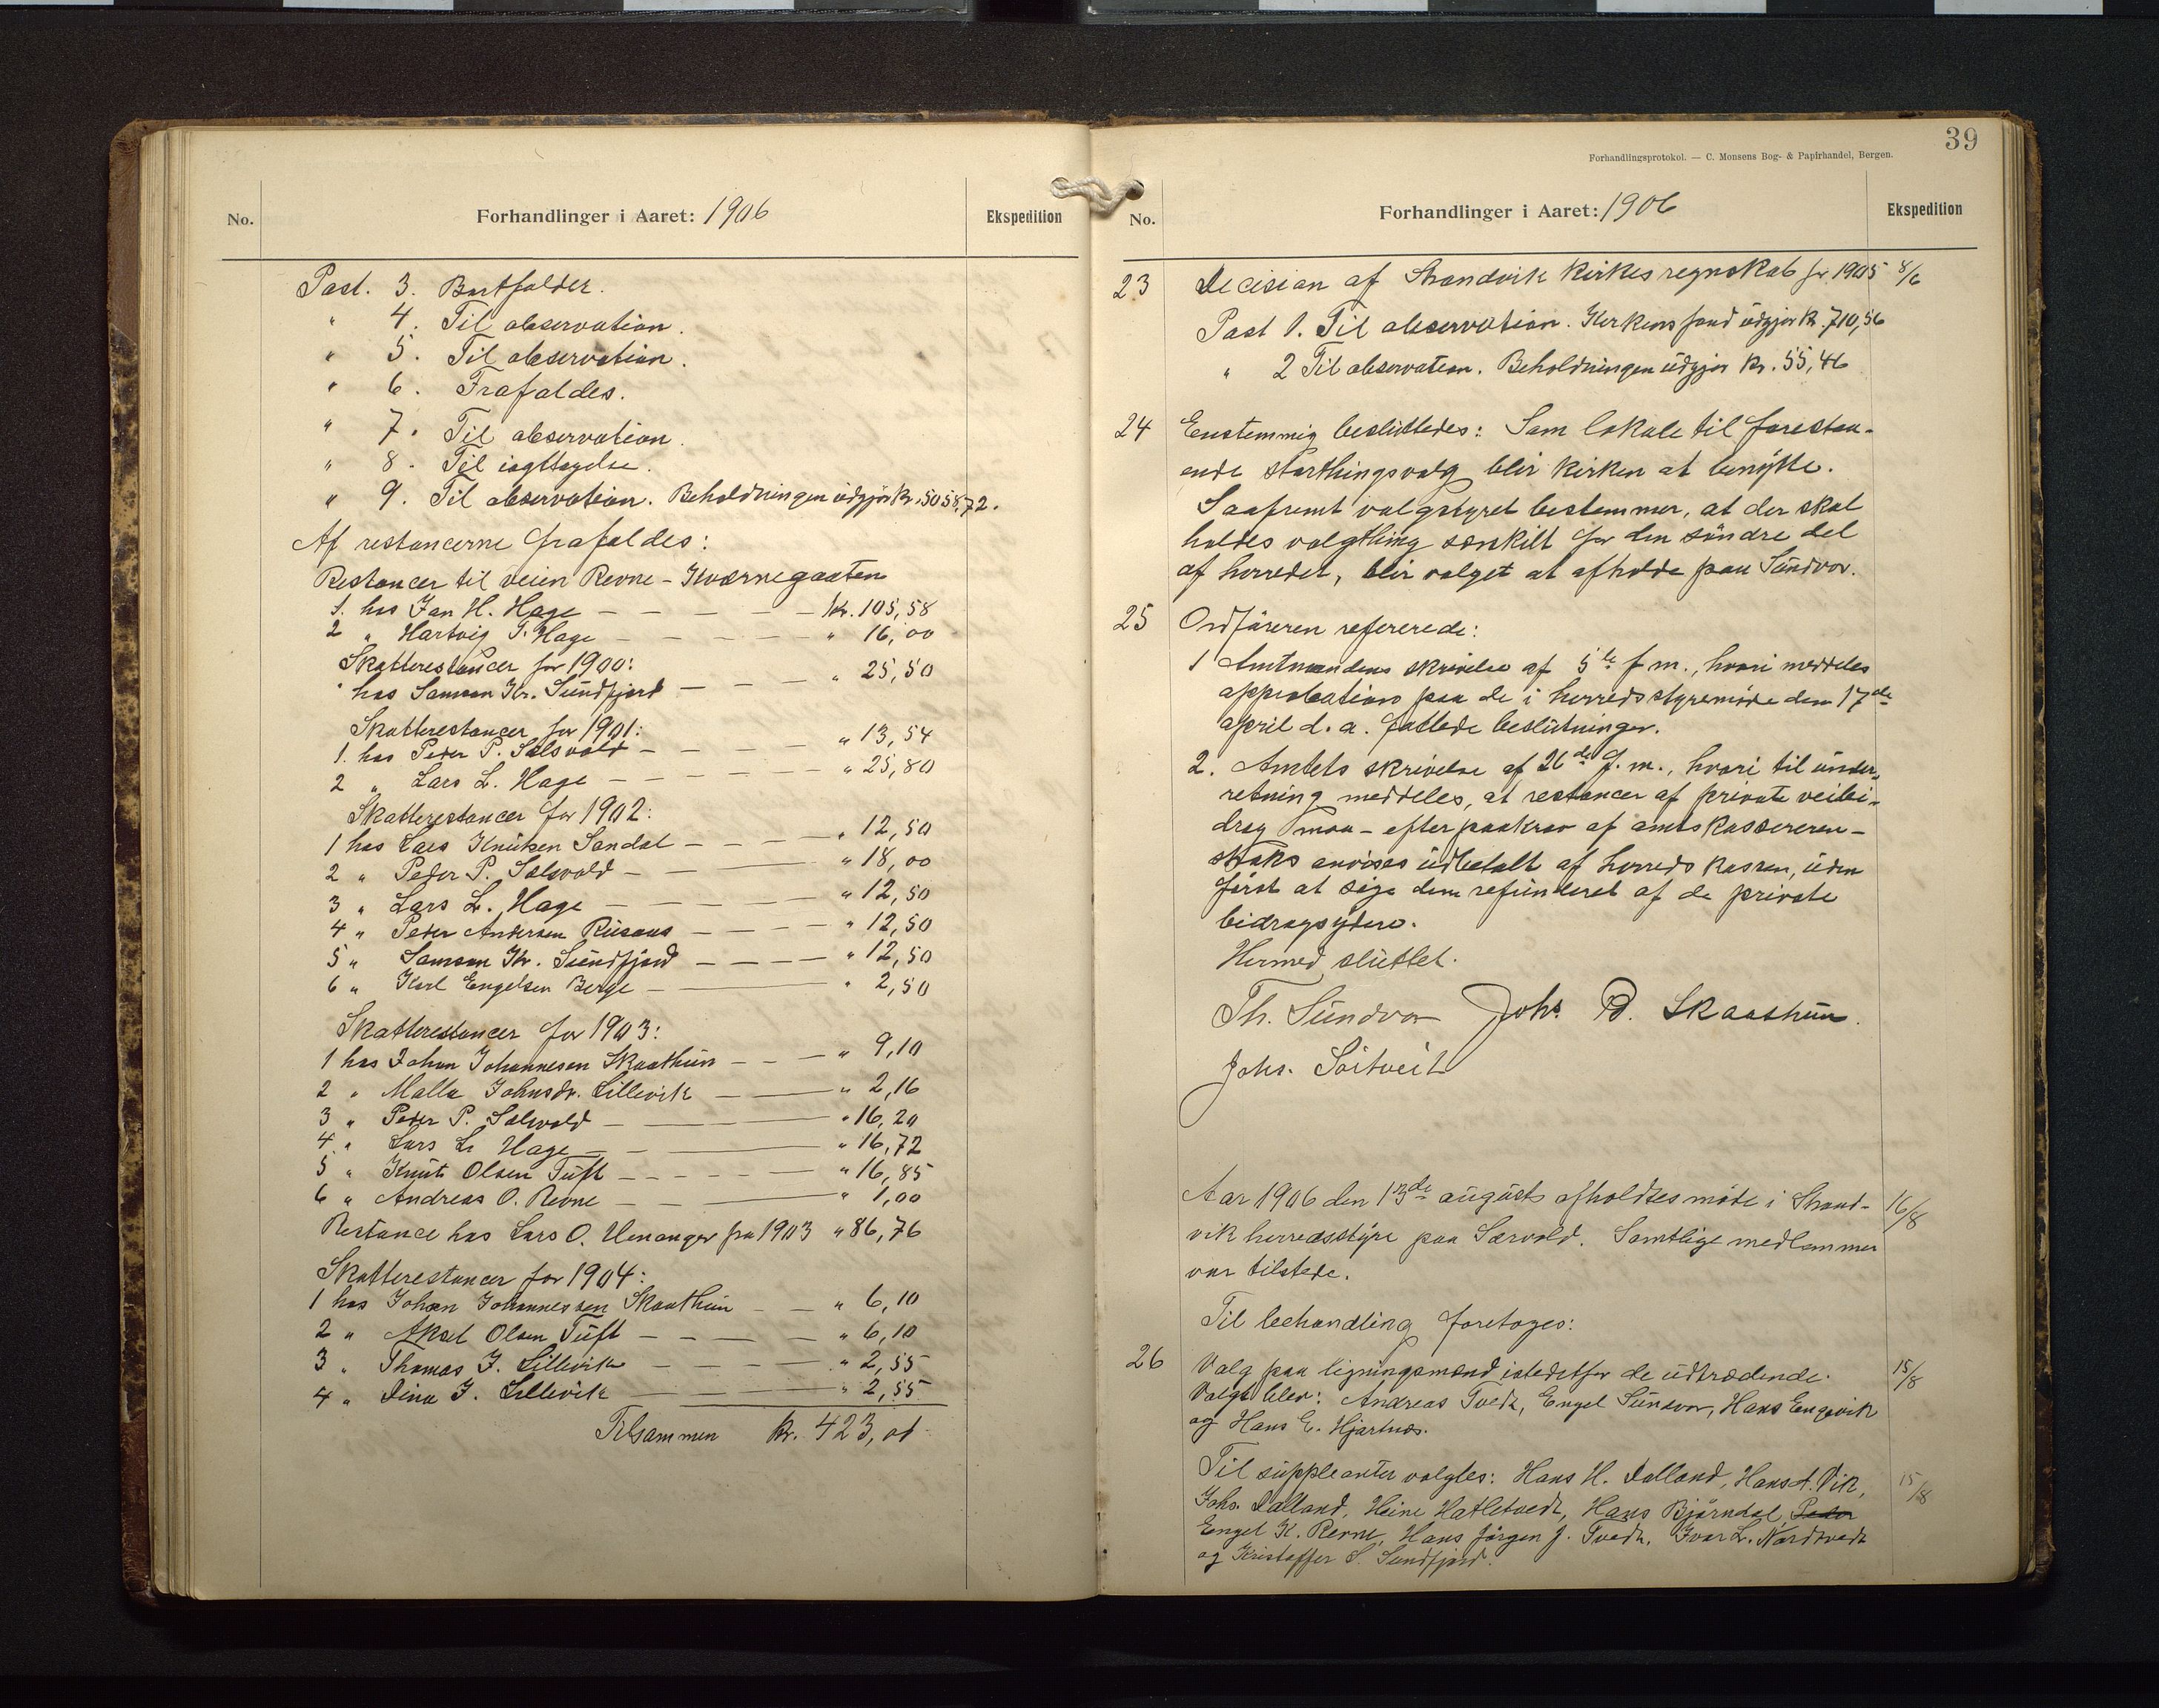 No.
Forhandlinger i Aaret: 1906
Ekspedition
Post. 3. Bortfalder.
" 4. Til observation.
" 5. Til observation.
" 6. Frafaldes.
" 7. Til observation.
" 8. Til iagttagelse.
" 9. Til observation. Beholdningen udgjør kr. 5058,72.
Af restancerne frafaldes:
Restancer til veien Revne - Kværnegaaten
1. hos Jan H. Hage — kr. 105,58
2 " Hartvig T. Hage — " 16,00
Skatterestancer for 1900:
hos Samson Kr. Sundfjord — " 25,50
Skatterestancer for 1901:
1. hos Peder P. Solsvold — " 13,54
2 " Lars L. Hage — " 25,80
Skatterestancer for 1902:
1 hos Lars Knutsen Sandal — " 12,50
2 " Peder P. Solsvold — " 18,00
3 " Lars L. Hage — " 12,50
4 " Peder Andersen — " 12,50
5 " Samson Kr. Sundfjord — " 12,50
6 " Karl Engelsen Berge — " 2,50
Skatterestancer for 1903:
1 hos Johan Johannesen Skaathun — " 9,10
2 " Malla Johnsdr. Lillevik — " 2,16
3 " Peder P. Solsvold — " 16,20
4. " Lars L. Hage — " 16,72
5 " Knut Olsen Tuft — " 16,85
6 " Andreas O. Revne — " 1,00
Restance hos Lars O. Venanger fra 1903 " 86,76
Skatterestancer for 1904:
1 hos Johan Johannessen Skaathun — " 6,10
2 " Aksel Olsen Tuft — " 6,10
3 " Thomas J. Lillevik — " 2,55
4 " Dina J. Lillevik — " 2,55
Tilsammen kr. 423,01
39
Forhandlingsprotokol. — C. Monsens Bog- & Papirhandel, Bergen.
No.
Forhandlinger i Aaret: 1906
Ekspedition
23 Decision af Strandvik kirkes regnskab for 1905 8/6
Post 1. Til observation. Kirkens fond udgjør kr. 710,56
" 2 Til observation. Beholdningen udgjør kr. 55,46
24 Enstemmig besluttedes: Som lokale til forestaa-
ende storthingsvalg blir kirken at benytte.
Saafremt valgstyret bestemmer, at der skal
holdes valgthing særskilt for den søndre del
af herredet, blir valget at afholde paa Sundvor.
25 Ordføreren refererede:
1 Amtmandens skrivelse af 5te f. m., hvori meddeles
approbation paa de i herredsstyremøde den 17de
april d. a. fattede beslutninger.
2. Amtets skrivelse af 26de f. m., hvori til under-
retning meddeles, at restancer af private veibi-
drag maa - efter paakrav af amtskassereren -
straks anvises udbetalt af herredskassen, uden
først at søge dem refunderet af de private
bidragsydere.
Hermed sluttet.
Th. Sundvor Johs. P. Skaathun.
Johs. Søitveit
Aar 1906 den 13de august afholdtes møde i Strand- 16/8
vik herredsstyre paa Sævold. Samtlige medlemmer
var tilstede.
Til behandling foretoges:
26 Valg paa ligningsmænd istedetfor de udtrædende. 15/8
Valgt blev: Andreas Tvedt, Engel Sundvor, Hans Engevik
og Hans E. Hjartnæs.
Til suppleanter valgtes: Hans H. Dalland, Hans A. Vik, 15/8
Johs. Dalland, Heine Hatletvedt, Hans Bjørndal, Peder
Engel K. Revne, Hans Jørgen J. Tvedt, Ivar L. Nordtvedt
og Kristoffer S. Sundfjord.